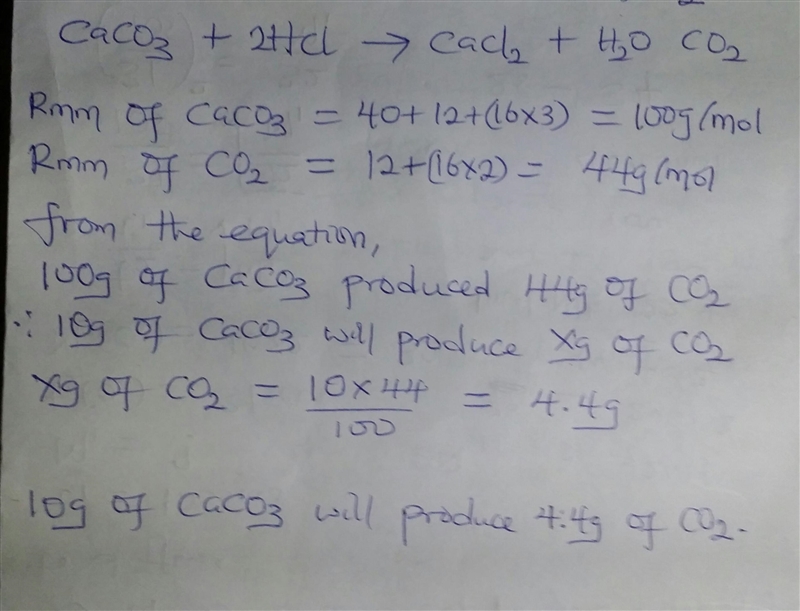 CaCO3 + 2HCl → CaCl2 + H2O CO2
Rmm of CaCO3 = 40+12+(16×3) = 100g/mol
Rmm of CO2 = 12+(16×2) = 44g/mol
from the equation,
100g of CaCO3 produced 44g of CO2
∴ 10g of CaCO3 will produce xg of CO2
xg of CO2 = 10×44/100 = 4.4g
10g of CaCO3 will produce 4.4g of CO2.